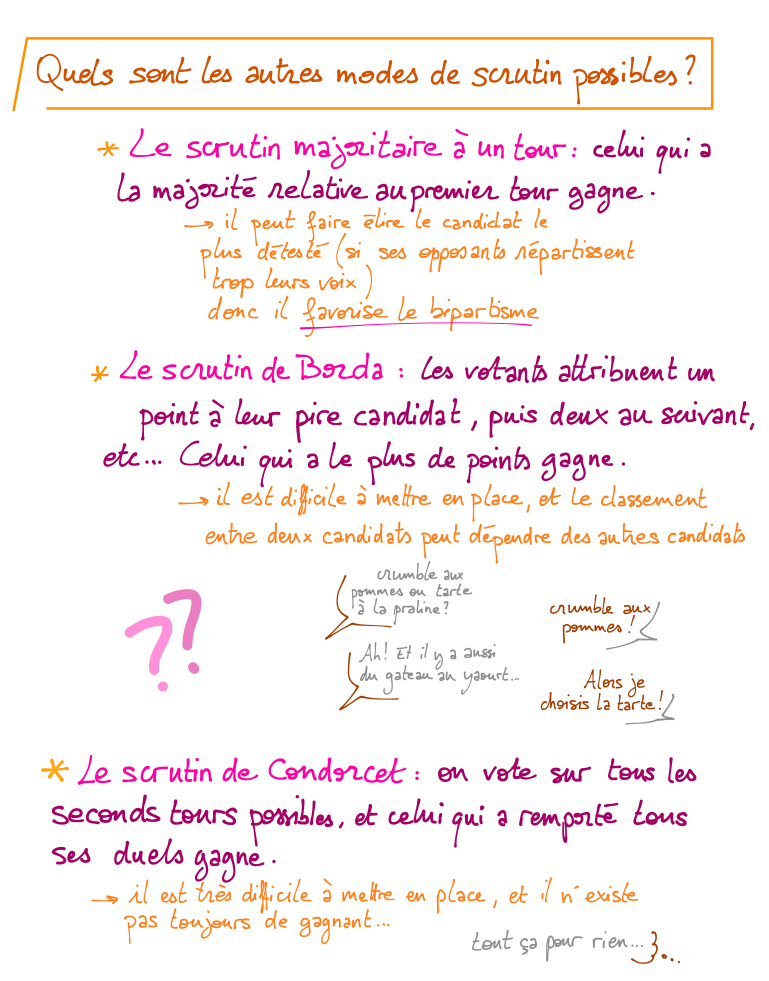 Quels sont les autres modes de scrutin possibles ?
* Le scrutin majoritaire à un tour : celui qui a
la majorité relative au premier tour gagne.
→ il peut faire élire le candidat le
plus détesté (si ses opposants répartissent
trop leurs voix)
donc il favorise le bipartisme
* Le scrutin de Borda : les votants attribuent un
point à leur pire candidat, puis deux au suivant,
etc... Celui qui a le plus de points gagne.
→ il est difficile à mettre en place, et le classement
entre deux candidats peut dépendre des autres candidats
??
crumble aux
pommes ou tarte
à la praline ?
crumble aux
pommes !
Ah! Et il y a aussi
du gateau au yaourt...
Alors je
choisis la tarte !
* Le scrutin de Condorcet : on vote sur tous les
seconds tours possibles, et celui qui a remporté tous
ses duels gagne.
→ il est très difficile à mettre en place, et il n'existe
pas toujours de gagnant...
tout ça pour rien...